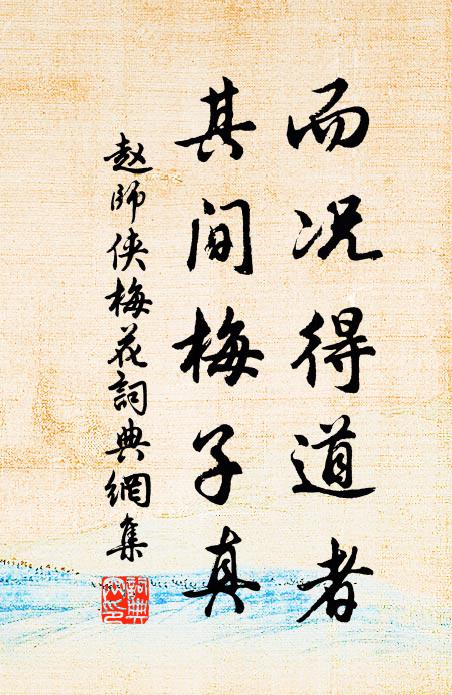 而况得道者
其间梅子真
赵师侠梅花詞典網集